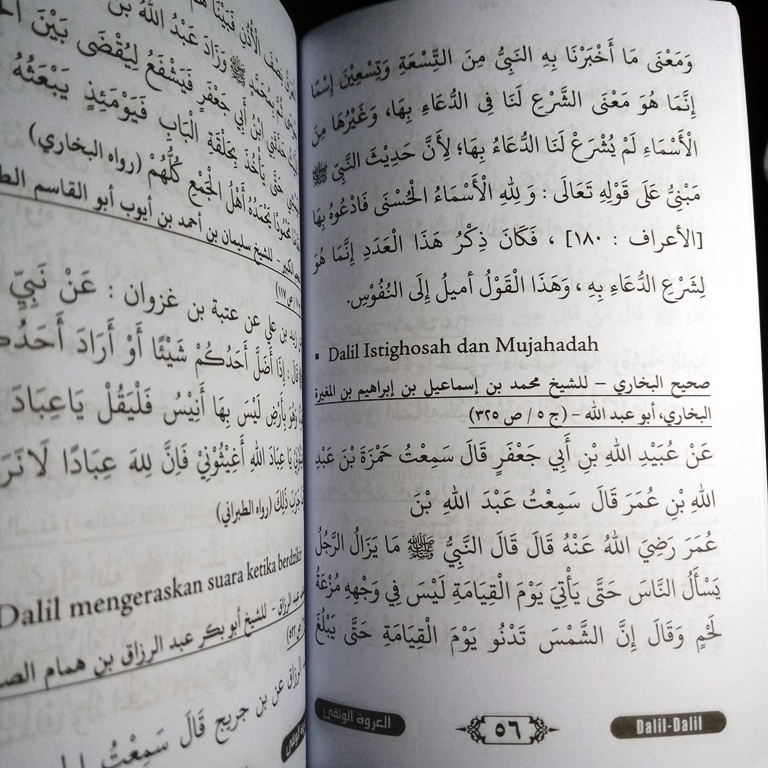 وَمَعْنَى مَا أَخْبَرْنَا بِهِ النَّبِيُّ مِنَ التِّسْعَةِ وَتِسْعِيْنَ إِسْمًا
إِنَّمَا هُوَ مَعْنَى الشَّرْعِ لَنَا فِى الدُّعَاءِ بِهَا، وَغَيْرُهَا مِنَ
الْأَسْمَاءِ لَمْ يُشْرَعْ لَنَا الدُّعَاءُ بِهَا؛ لِأَنَّ حَدِيْثَ النَّبِيّ ﷺ
مَبْنِيٌّ عَلَى قَوْلِهِ تَعَالَى : وَ لِلهِ الْأَسْمَاءُ الْحُسْنَى فَادْعُوهُ بِهَا
[الأعراف : ١٨٠] ، فَكَانَ ذِكْرُ هَذَا الْعَدَدِ إِنَّمَا هُوَ
لِشَرْعِ الدُّعَاءِ بِهِ ، وَهَذَا الْقَوْلُ أميلُ إِلَى النُّفُوْسِ.
▪ Dalil Istighosah dan Mujahadah
صحيح البخاري – للشيخ محمد بن إسماعيل بن إبراهيم بن المغيرة
البخاري، أبو عبد الله – (ج ٥ / ص ٣٣٥)
عَنْ عُبَيْدِ اللهِ بْنِ أَبِي جَعْفَرٍ قَالَ سَمِعْتُ حَمْزَةَ بْنَ عَبْدِ
اللهِ بْنِ عُمَرَ قَالَ سَمِعْتُ عَبْدَ اللهِ بْنَ
عُمَرَ رَضِيَ اللهُ عَنْهُ قَالَ قَالَ النَّبِيُّ ﷺ مَا يَزَالُ الرَّجُلُ
يَسْأَلُ النَّاسَ حَتَّى يَأْتِيَ يَوْمَ الْقِيَامَةِ لَيْسَ فِي وَجْهِهِ مُزْعَةُ
لَحْمٍ وَقَالَ إِنَّ الشَّمْسَ تَدْنُو يَوْمَ الْقِيَامَةِ حَتَّى يَبْلُغَ
العروة الوثقى
٥٦
Dalil-Dalil
نِصْفَ الْأُذُنِ فَبَيْنَا هُمْ
ﷺ وَزَادَ عَبْدُ اللهِ بْنُ
ابْنُ أَبِي جَعْفَرٍ فَيَشْفَعُ لِيُقْضَى بَيْنَ
حَتَّى يَأْخُذَ بِحَلْقَةِ الْبَابِ فَيَوْمَئِذٍ يَبْعَثُهُ
مَحْمُودًا يَحْمَدُهُ أَهْلُ الْجَمْعِ كُلُّهُمْ (رواه البخاري)
الكبير – للشيخ سليمان بن أحمد بن أيوب أبو القاسم
ص ١١٧)
بن علي عن عتبة بن غزوان : عَنْ نَبِيِّ
قَالَ : إِذَا أَضَلَّ أَحَدُكُمْ شَيْئًا أَوْ أَرَادَ
بِأَرْضٍ لَيْسَ بِهَا أَنِيْسُ فَلْيَقُلْ يَاعِبَادَ
يَا عِبَادَ اللهِ أَغِيْثُوْنِيْ فَإِنَّ لِلهِ عِبَادًا لَا
ذَلِكَ (رواه الطبراني)
Dalil mengeraskan suara ketika
للشيخ أبو بكر عبد الرزاق بن همام
عن بن جريج قَالَ سَمِعْتُ